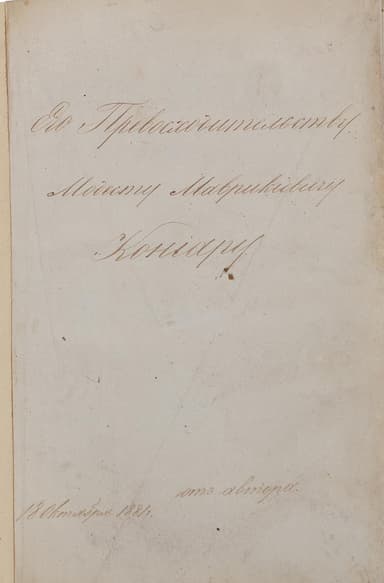 Его Превосходительству
Модесту Маврикіевичу
Конгару
отъ автора.
18 Октября 1881г.